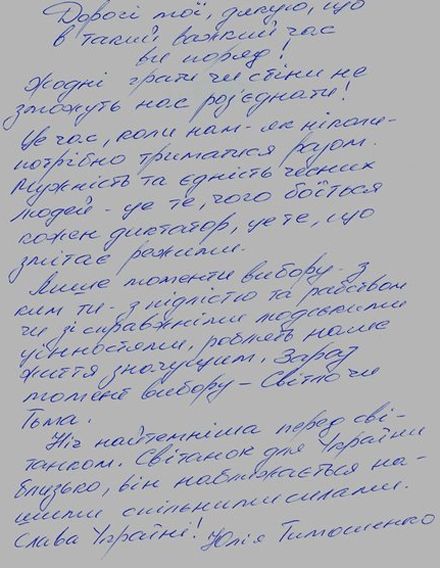 Дорогі мої, дякую, що
в такий важкий час
ви поряд!
Жодні грати чи стіни не
зможуть нас роз'єднати!
Це час, коли нам - як ніколи -
потрібно триматися разом.
Мужність та єдність чесних
людей - це те, чого боїться
кожен диктатор, це те, що
змітає режими.
Лише моменти вибору - з
ким ти - з підлістю та рабством
чи зі справжніми людськими
цінностями, роблять наше
життя значущим. Зараз
момент вибору - Світло чи
Тьма.
Ніч найтемніша перед сві-
танком. Світанок для України
близько, він наближається на-
шими спільними силами.
Слава Україні! Юлія Тимошенко